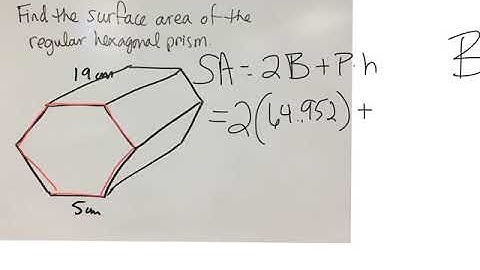 Find the surface area of the
regular hexagonal prism.
19 cm
SA = 2B + P·h
= 2(64.952) +
5 cm
B